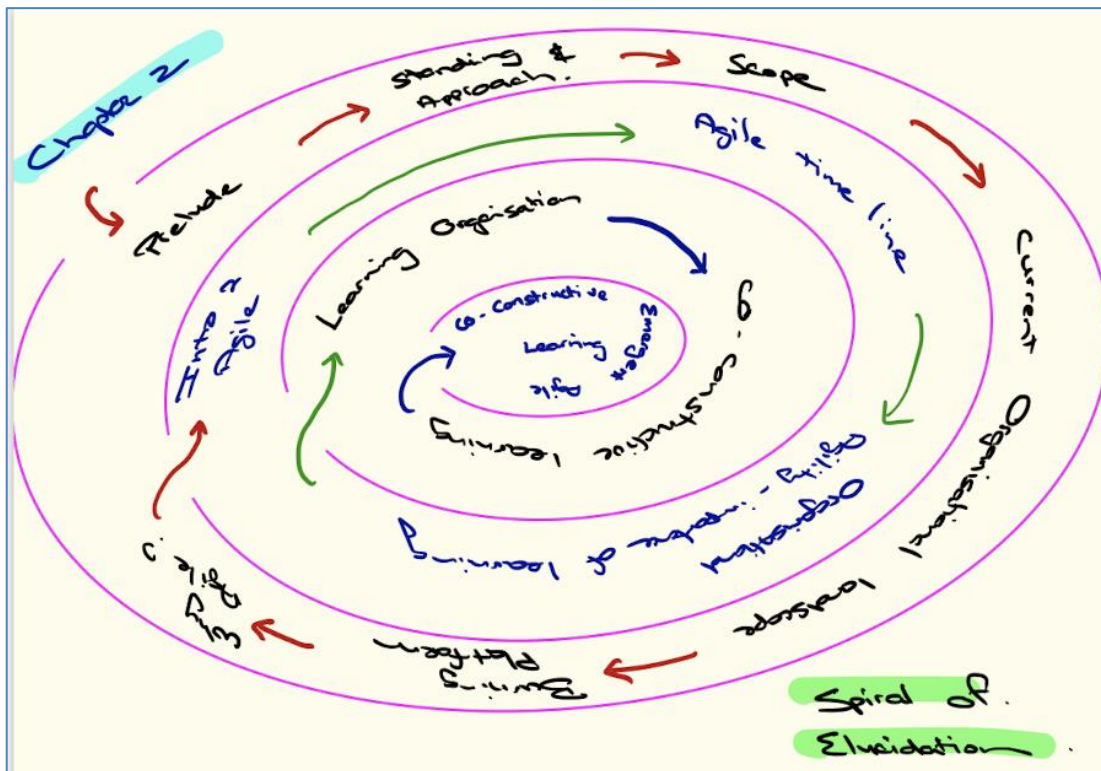 Chapter 2
Prelude
Standing &
Approach.
Scope
Current Organisational landscape
Burning
Platform
Why
Agile?
Intro 2
Agile
Agile time line
Organisational
Agility - importance of learning
Learning Organisation
Co-constructive learning
Co-constructive
Emergent
Learning
Agile
Spiral of.
Elucidation.